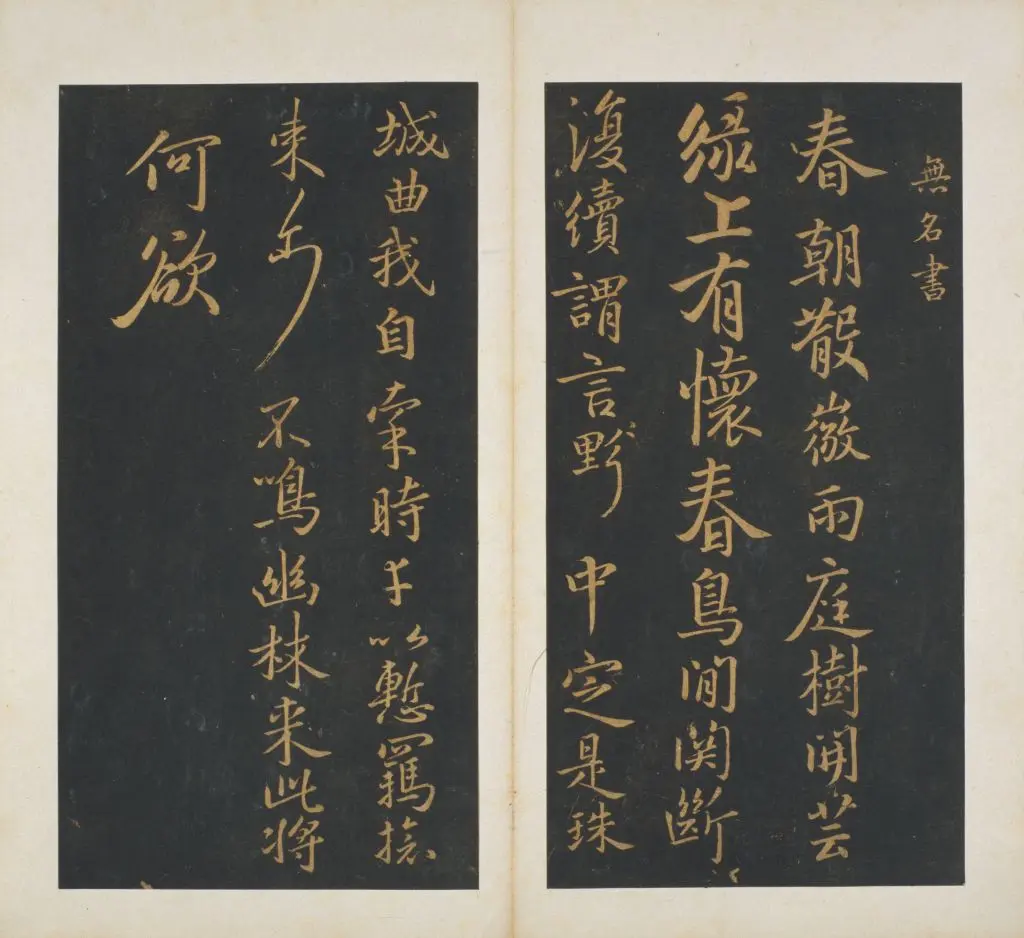 無名書
春朝散微雨庭樹開芸
緑上有懷春鳥間関斷
復續謂言野中定是珠
城曲我自牢時士以慙羈
束尓不鳴幽来此将
何欲